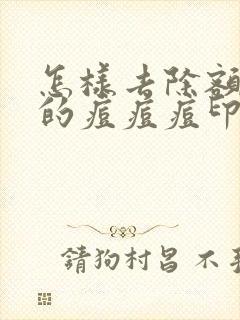 怎樣去除額
的痘痘痘印
請狗村呂 不